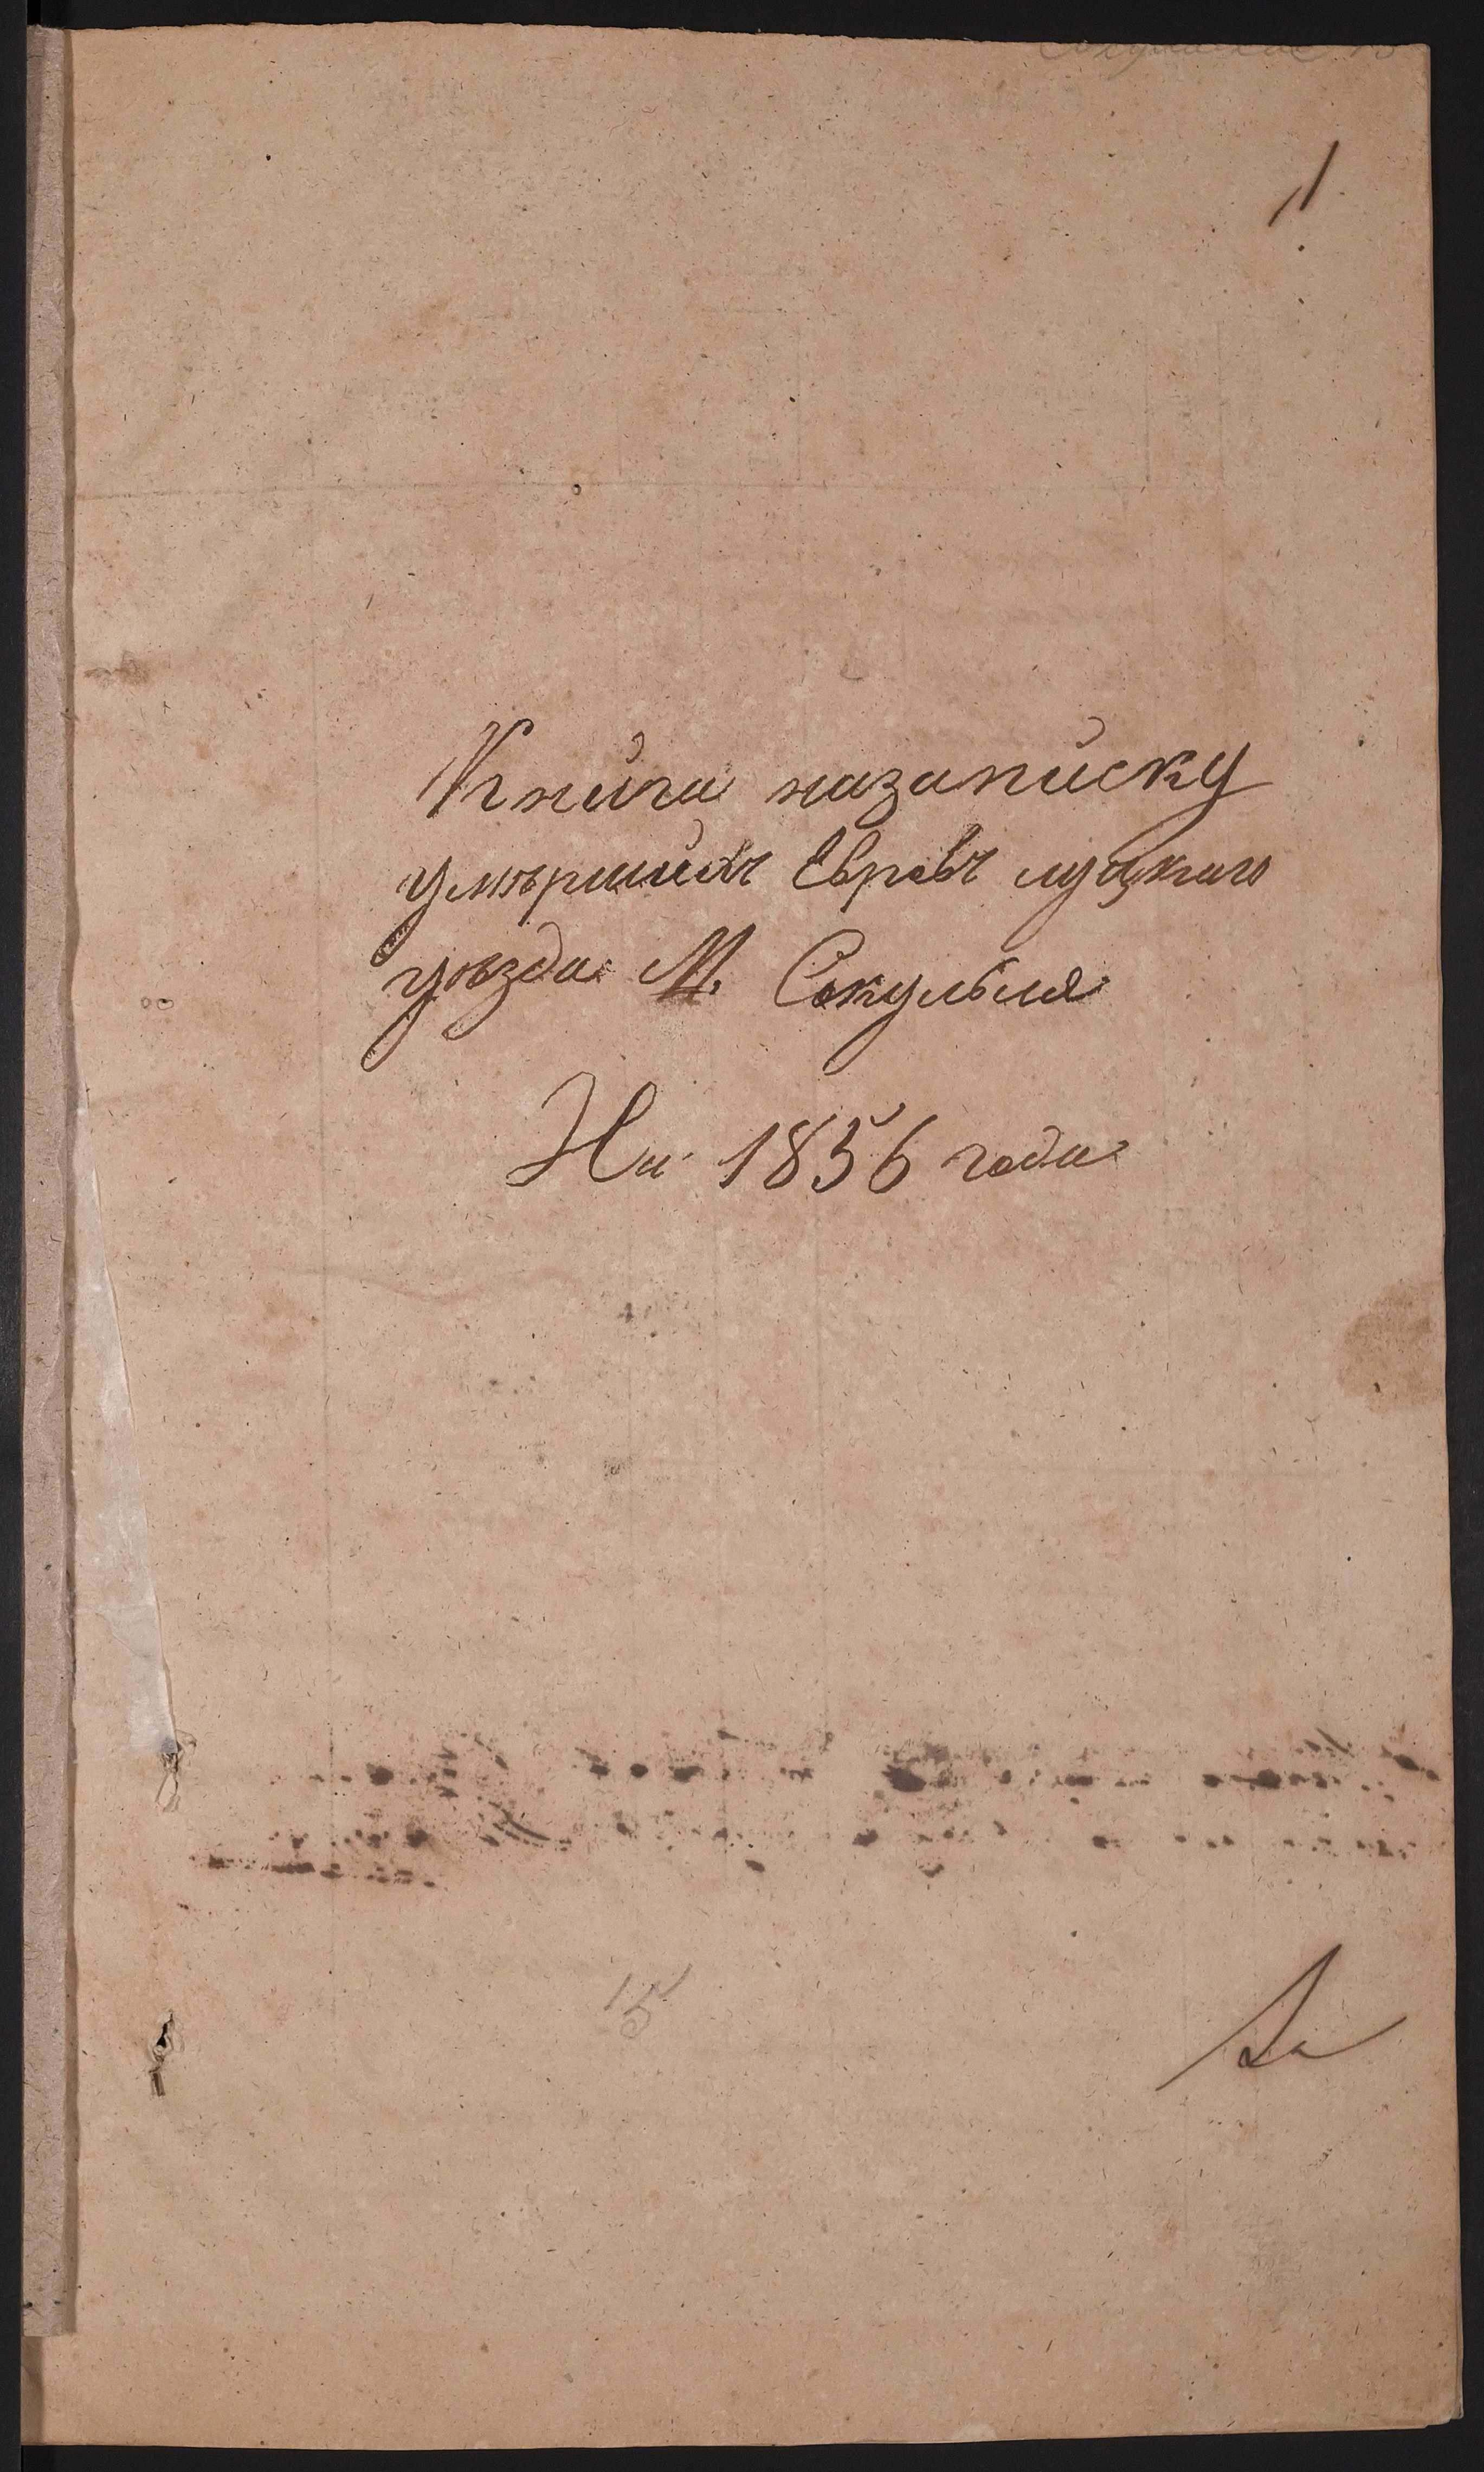 1
Книга назаписку
умършихъ Евреевъ луцкаго
уѣзда М. Сокульля
На 1856 года
15